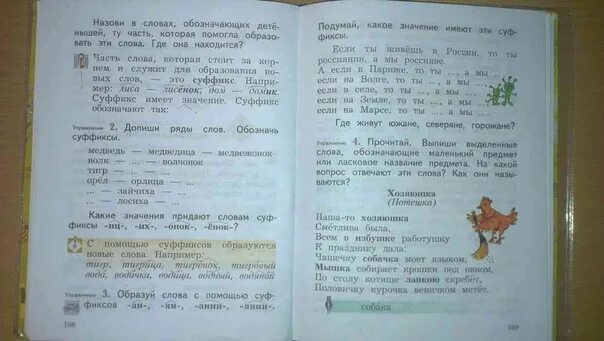 Назови в словах, обозначающих детё-
нышей, ту часть, которая помогла образо-
вать эти слова. Где она находится?
Часть слова, которая стоит за кор-
нем и служит для образования но-
вых слов, — это суффикс. Напри-
мер: лиса — лисёнок, дом — домик.
Суффикс имеет значение. Суффикс
обозначают так:
Упражнение 2. Допиши ряды слов. Обозначь
суффиксы.
медведь — медведица — медвежонок
волк — ... — волчонок
тигр — ... — ...
орёл — орлица — ...
... — зайчиха — ...
... — лосиха — ...
Какие значения придают словам суф-
фиксы -иц-, -их-, -онок-, -ёнок-?
С помощью суффиксов образуются
новые слова. Например:
тигр, тигрица, тигрёнок, тигровый
вода, водичка, водица, водный, водяной
Упражнение 3. Образуй слова с помощью суф-
фиксов -ан-, -ян-, -анин-, -янин-.
108
Подумай, какое значение имеют эти суф-
фиксы.
Если ты живёшь в России, то ты
россиянин, а мы россияне.
А если в Париже, то ты ..., а мы ...
если на Волге, то ты ..., а мы ...
если в селе, то ты ..., а мы ...
если на Земле, то ты ..., а мы ...
если на Марсе, то ты ..., а мы ...
Где живут южане, северяне, горожане?
Упражнение 4. Прочитай. Выпиши выделенные
слова, обозначающие маленький предмет
или ласковое название предмета. На какой
вопрос отвечают эти слова? Как они назы-
ваются?
Хозяюшка
(Потешка)
Наша-то хозяюшка
Сметлива была,
Всем в избушке работушку
К празднику дала:
Чашечку собачка моет языком,
Мышка собирает крошки под окном,
По столу котище лапкою скребёт,
Половичку курочка веничком метёт.
собака
109